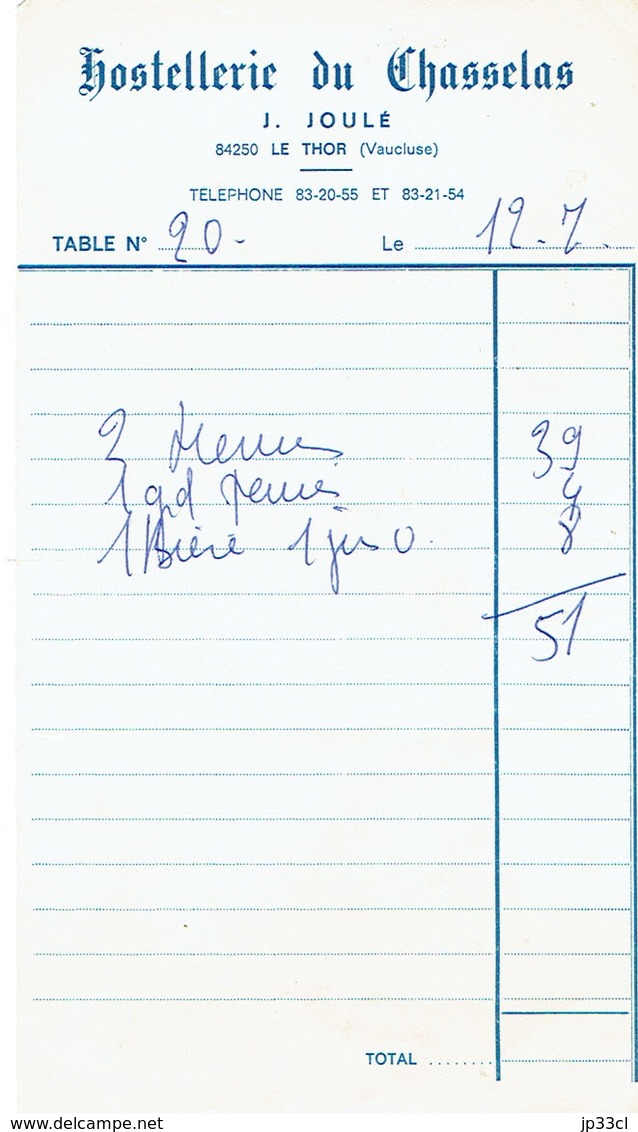 Hostellerie du Chasselas
J. JOULÉ
84250 LE THOR (Vaucluse)
TELEPHONE 83-20-55 ET 83-21-54
TABLE N° 20. Le 12.7.
2 Menus 39
1 gd demi 4
1 Bière 1 jus O. 8
51
TOTAL
delcampe.net jp33cl